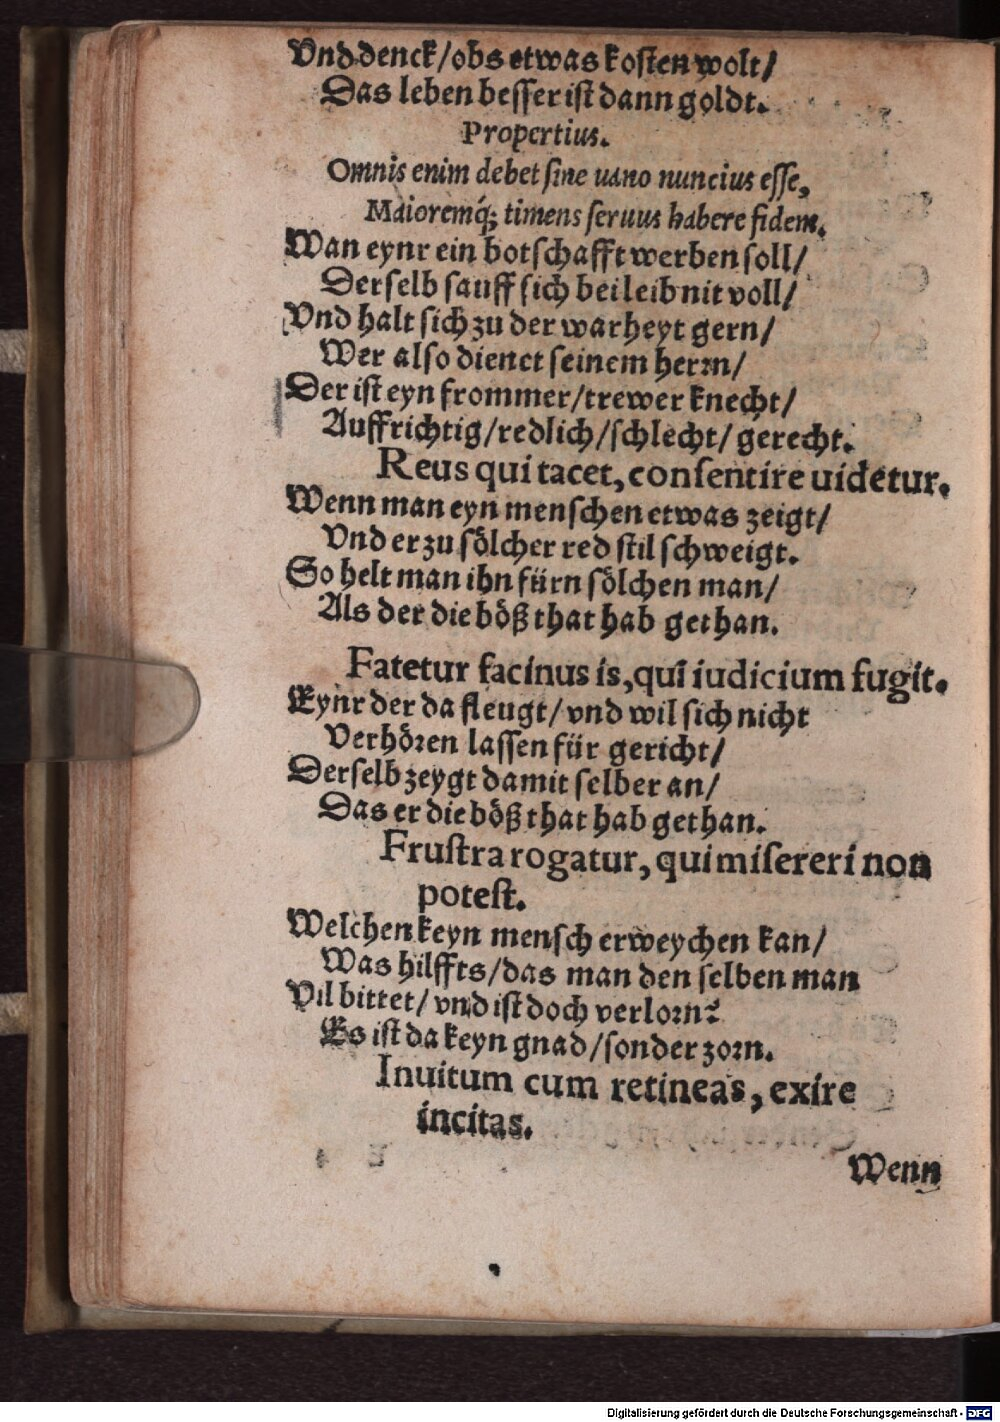 Vnd denck/obs etwas kosten wolt/
Das leben besser ist dann goldt.
Propertius.
Omnis enim debet sine uano nuncius esse,
Maioremq́; timens seruus habere fidem.
Wan eynr ein botschafft werben soll/
Derselb sauff sich bei leib nit voll/
Vnd halt sich zu der warheyt gern/
Wer also dienet seinem herrn/
Der ist eyn frommer/trewer knecht/
Auffrichtig/redlich/schlecht/gerecht.
Reus qui tacet, consentire uidetur.
Wenn man eyn menschen etwas zeigt/
Vnd er zu sölcher red stil schweigt.
So helt man ihn fürn sölchen man/
Als der die böß that hab gethan.
Fatetur facinus is, qui iudicium fugit.
Eynr der da fleugt/vnd wil sich nicht
Verhören lassen für gericht/
Derselb zeygt damit selber an/
Das er die böß that hab gethan.
Frustra rogatur, qui misereri non
potest.
Welchen keyn mensch erweychen kan/
Was hilffts/das man den selben man
Vil bittet/vnd ist doch verlorn?
Es ist da keyn gnad/sonder zorn.
Inuitum cum retineas, exire
incitas.
Wenn
Digitalisierung gefördert durch die Deutsche Forschungsgemeinschaft - DFG